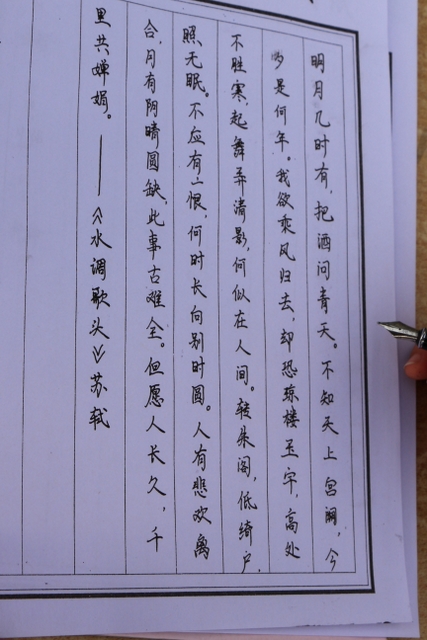 明月几时有，把酒问青天。不知天上宫阙，今
夕是何年。我欲乘风归去，却恐琼楼玉宇，高处
不胜寒，起舞弄清影，何似在人间。转朱阁，低绮户，
照无眠。不应有恨，何时长向别时圆。人有悲欢离
合，月有阴晴圆缺，此事古难全。但愿人长久，千
里共婵娟。——《水调歌头》苏轼